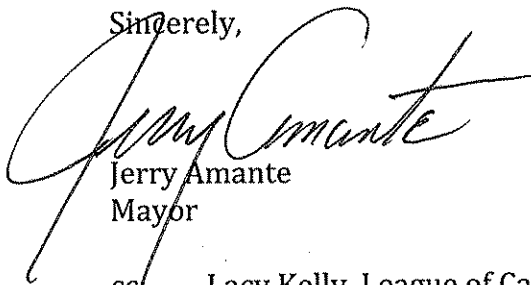 Sincerely,
Jerry Amante
Jerry Amante
Mayor
cc: Lacy Kelly, League of Ca